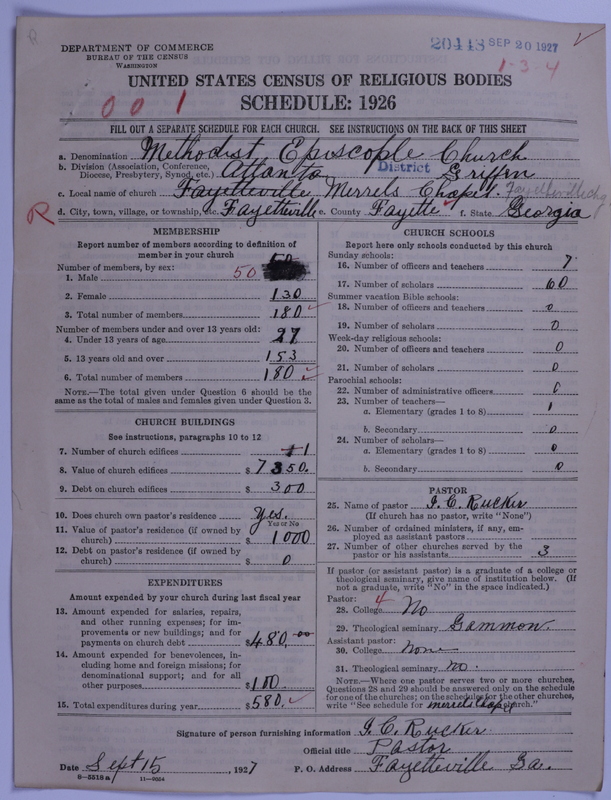 20448 SEP 20 1927
R
DEPARTMENT OF COMMERCE
BUREAU OF THE CENSUS
WASHINGTON
1-3-4
UNITED STATES CENSUS OF RELIGIOUS BODIES
001
SCHEDULE: 1926
FILL OUT A SEPARATE SCHEDULE FOR EACH CHURCH. SEE INSTRUCTIONS ON THE BACK OF THIS SHEET
a. Denomination Methodist Episcople Church
b. Division (Association, Conference, Diocese, Presbytery, Synod, etc.) Atlanta District Griffin
c. Local name of church Fayetteville Merrels Chapel.
R
d. City, town, village, or township, etc. Fayetteville e. County Fayette f. State Georgia
MEMBERSHIP
Report number of members according to definition of
member in your church
Number of members, by sex:
1. Male 50 50
2. Female 130
3. Total number of members 180
Number of members under and over 13 years old:
4. Under 13 years of age 27
5. 13 years old and over 153
6. Total number of members 180
NOTE.—The total given under Question 6 should be
same as the total of males and females given under Question 3.
CHURCH BUILDINGS
See instructions, paragraphs 10 to 12
7. Number of church edifices 1
8. Value of church edifices $7350.
9. Debt on church edifices $300
10. Does church own pastor's residence? Yes.
Yes or No
11. Value of pastor's residence (if owned by
church) $1000
12. Debt on pastor's residence (if owned by
church) $0
EXPENDITURES
Amount expended by your church during last fiscal year
13. Amount expended for salaries, repairs,
and other running expenses; for im-
provements or new buildings; and for
payments on church debt $480.00
14. Amount expended for benevolences, in-
cluding home and foreign missions; for
denominational support; and for all
other purposes $100.
15. Total expenditures during year $580.
CHURCH SCHOOLS
Report here only schools conducted by this church
Sunday schools:
16. Number of officers and teachers 7
17. Number of scholars 60
Summer vacation Bible schools:
18. Number of officers and teachers 0
19. Number of scholars 0
Week-day religious schools:
20. Number of officers and teachers 0
21. Number of scholars 0
Parochial schools:
22. Number of administrative officers 0
23. Number of teachers—
a. Elementary (grades 1 to 8) 1
b. Secondary 0
24. Number of scholars—
a. Elementary (grades 1 to 8) 0
b. Secondary 0
PASTOR
25. Name of pastor I. C. Rucker
(If church has no pastor, write "None")
26. Number of ordained ministers, if any, em-
ployed as assistant pastors
27. Number of other churches served by the
pastor or his assistants 3
If pastor (or assistant pastor) is a graduate of a college or
theological seminary, give name of institution below. (If
not a graduate, write "No" in the space indicated.)
Pastor: 4
28. College No
29. Theological seminary Gammon.
Assistant pastor:
30. College None
31. Theological seminary no.
NOTE.—Where one pastor serves two or more churches,
Questions 28 and 29 should be answered only on the schedule
for one of the churches; on the schedules for the other churches,
write "See schedule for merrels Chapel church."
Signature of person furnishing information I. C. Rucker
Official title Pastor
Date Sept 15, 1927 P. O. Address Fayetteville Ga.
8-5518a 11-9054